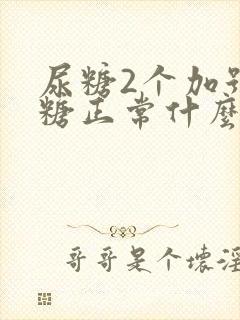 尿糖2个加号
糖正常什麼
哥哥是个壞淫